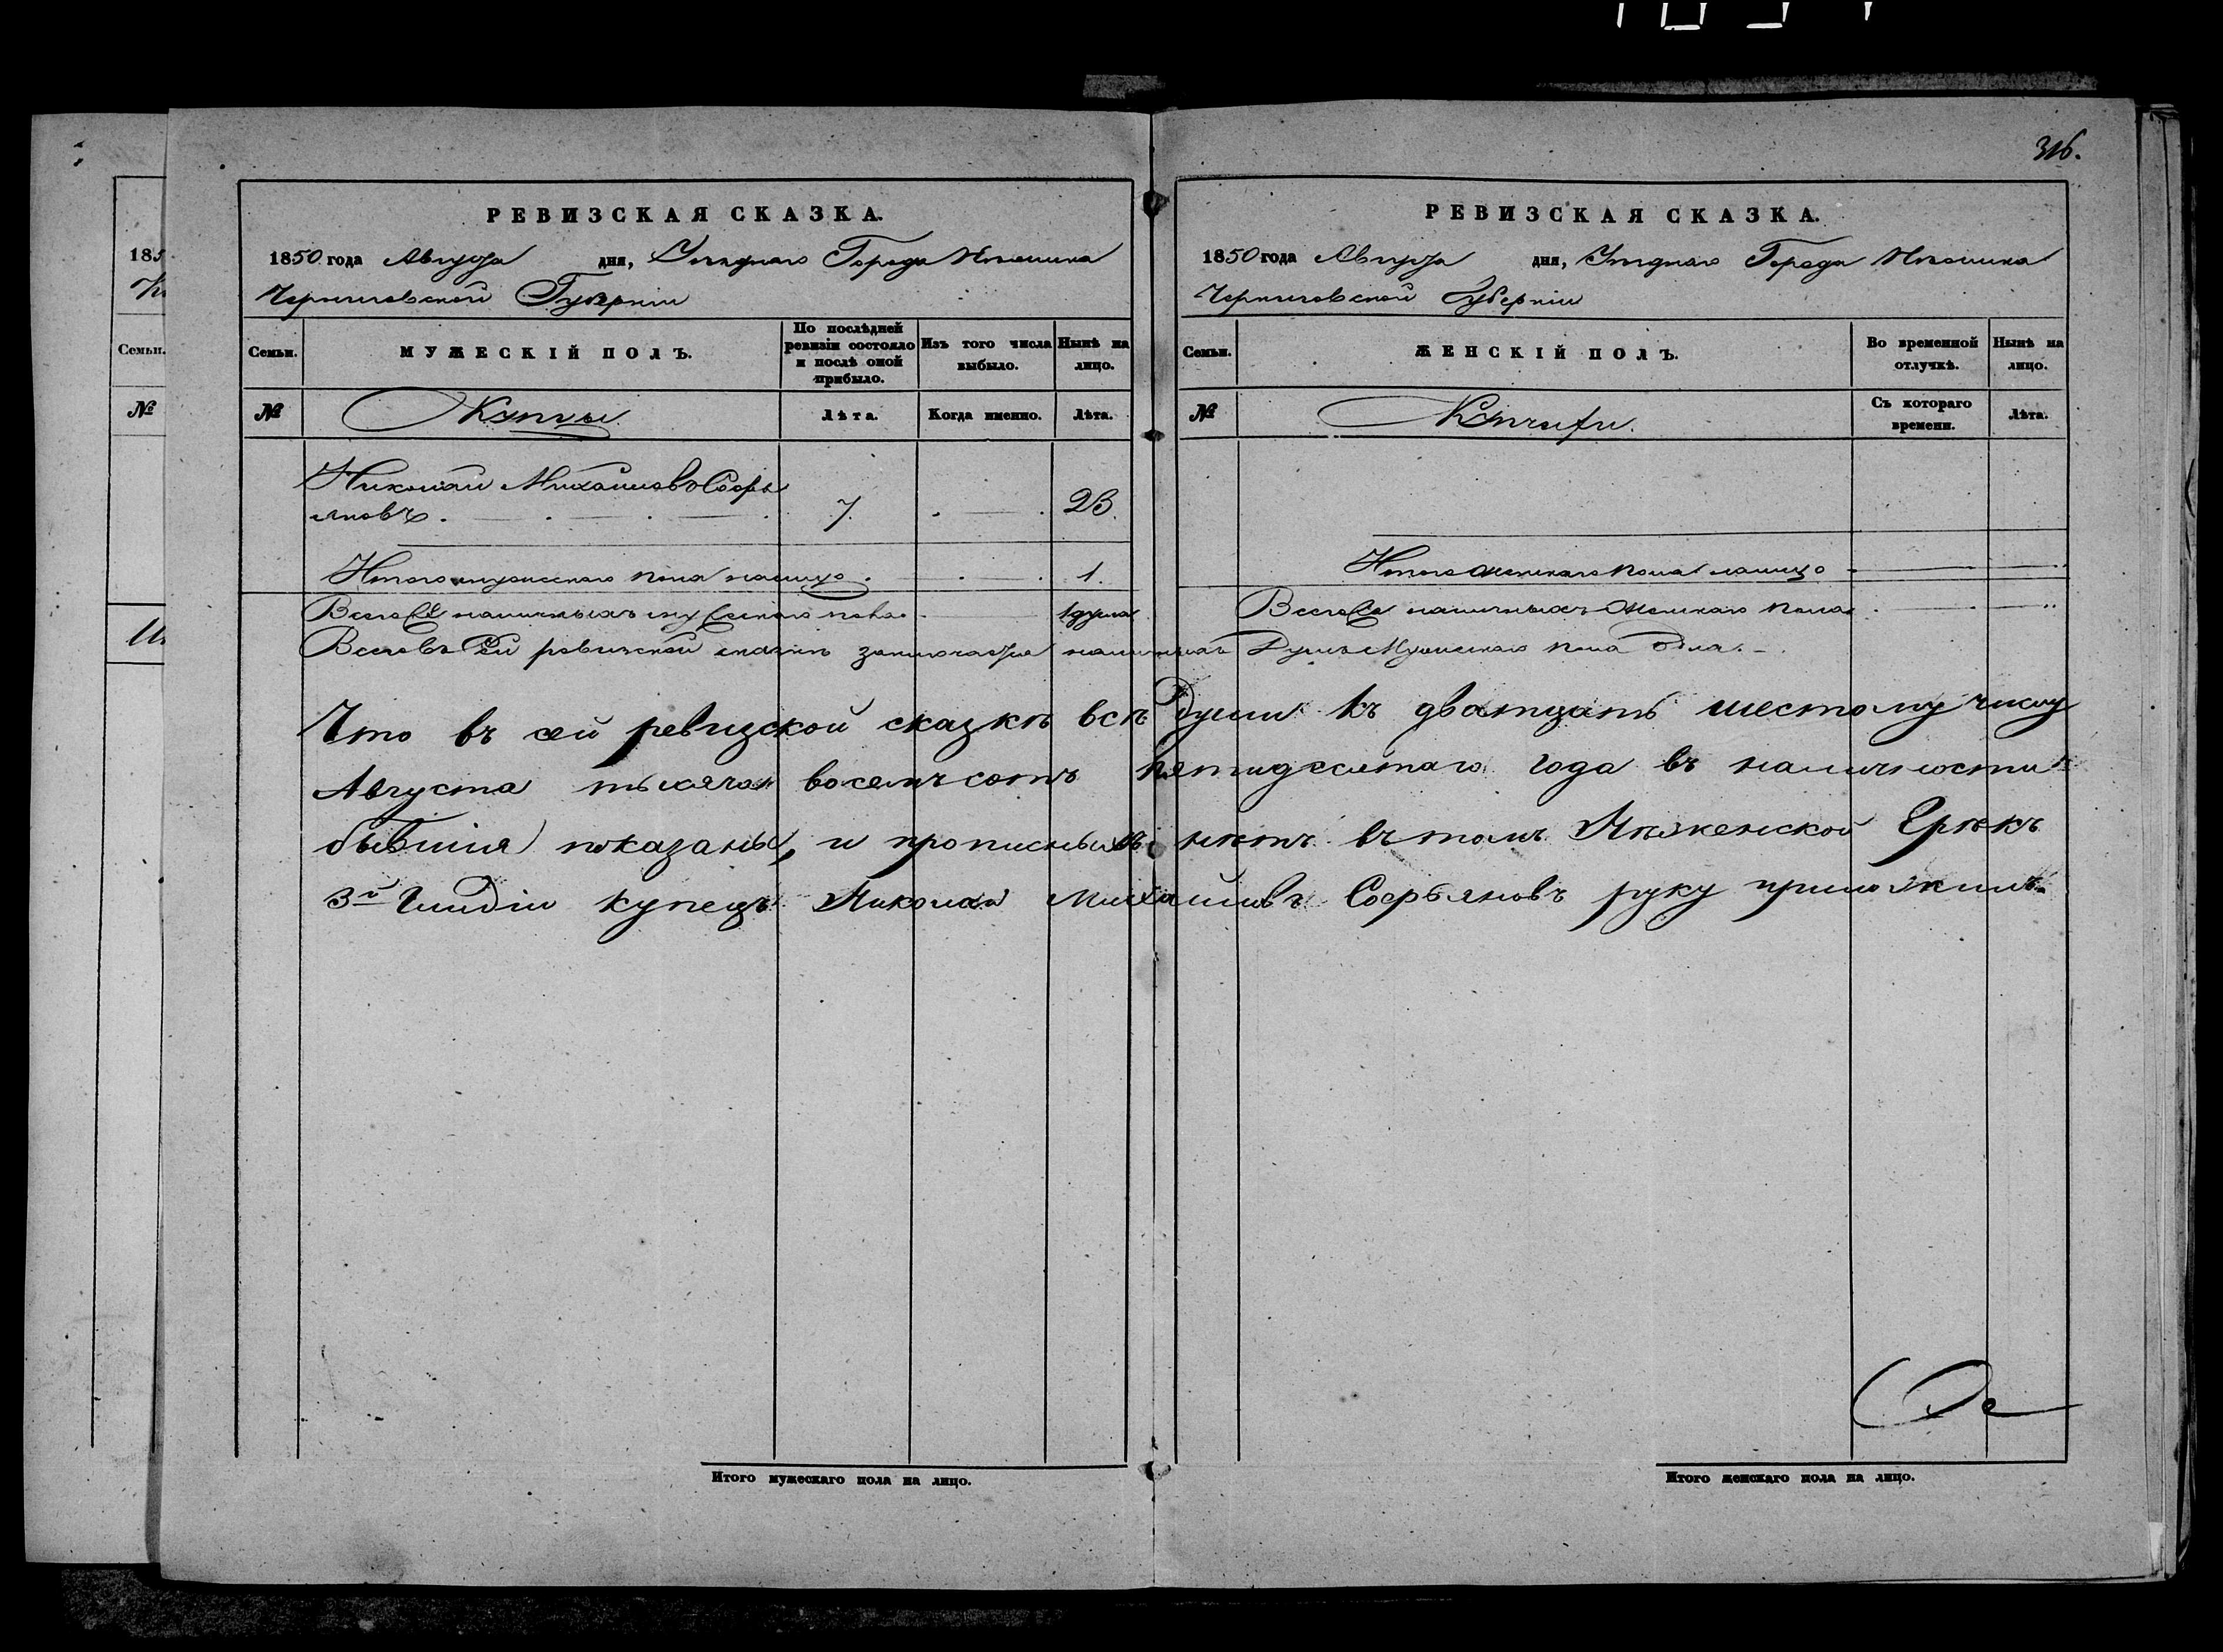 316.
РЕВИЗСКАЯ СКАЗКА.
1850 года Августа дня, Уѣзднаго Города Нѣжина
Черниговской Губерніи
Семьи.
МУЖЕСКІЙ ПОЛЪ.
По послѣдней ревизіи состояло и послѣ оной прибыло.
Изъ того числа выбыло.
Нынѣ на лицо.
№
Купцы
Лѣта.
Когда именно.
Лѣта.
Николай Михайловъ Софь
яновъ. 7. 23.
Итого мужескаго пола налицо. 1.
Всего наличныхъ мужескаго пола 1 душа
Всего въ сей ревизской сказкѣ заключается наличныхъ Душъ Мужескаго пола одна.
Что въ сей ревизской сказкѣ всѣ души къ дватцать шестому числу
Августа тысяча восемъсотъ пятидесятаго года въ наличности
бывшія показаны, и прописныхъ нѣтъ въ томъ Нѣженской Грѣкъ
3й Гилдіи купецъ Николай Михайловъ Софьяновъ руку приложилъ.
Итого мужескаго пола на лицо.
РЕВИЗСКАЯ СКАЗКА.
1850 года Августа дня, Уѣзднаго Города Нѣжина
Черниговской Губерніи
Семьи.
ЖЕНСКІЙ ПОЛЪ.
Во временной отлучкѣ.
Нынѣ на лицо.
№
Купчихи.
Съ котораго времени.
Лѣта.
Итого женскаго пола налицо
Всего наличныхъ Женскаго пола
Итого женскаго пола на лицо.
185
Семьи.
№